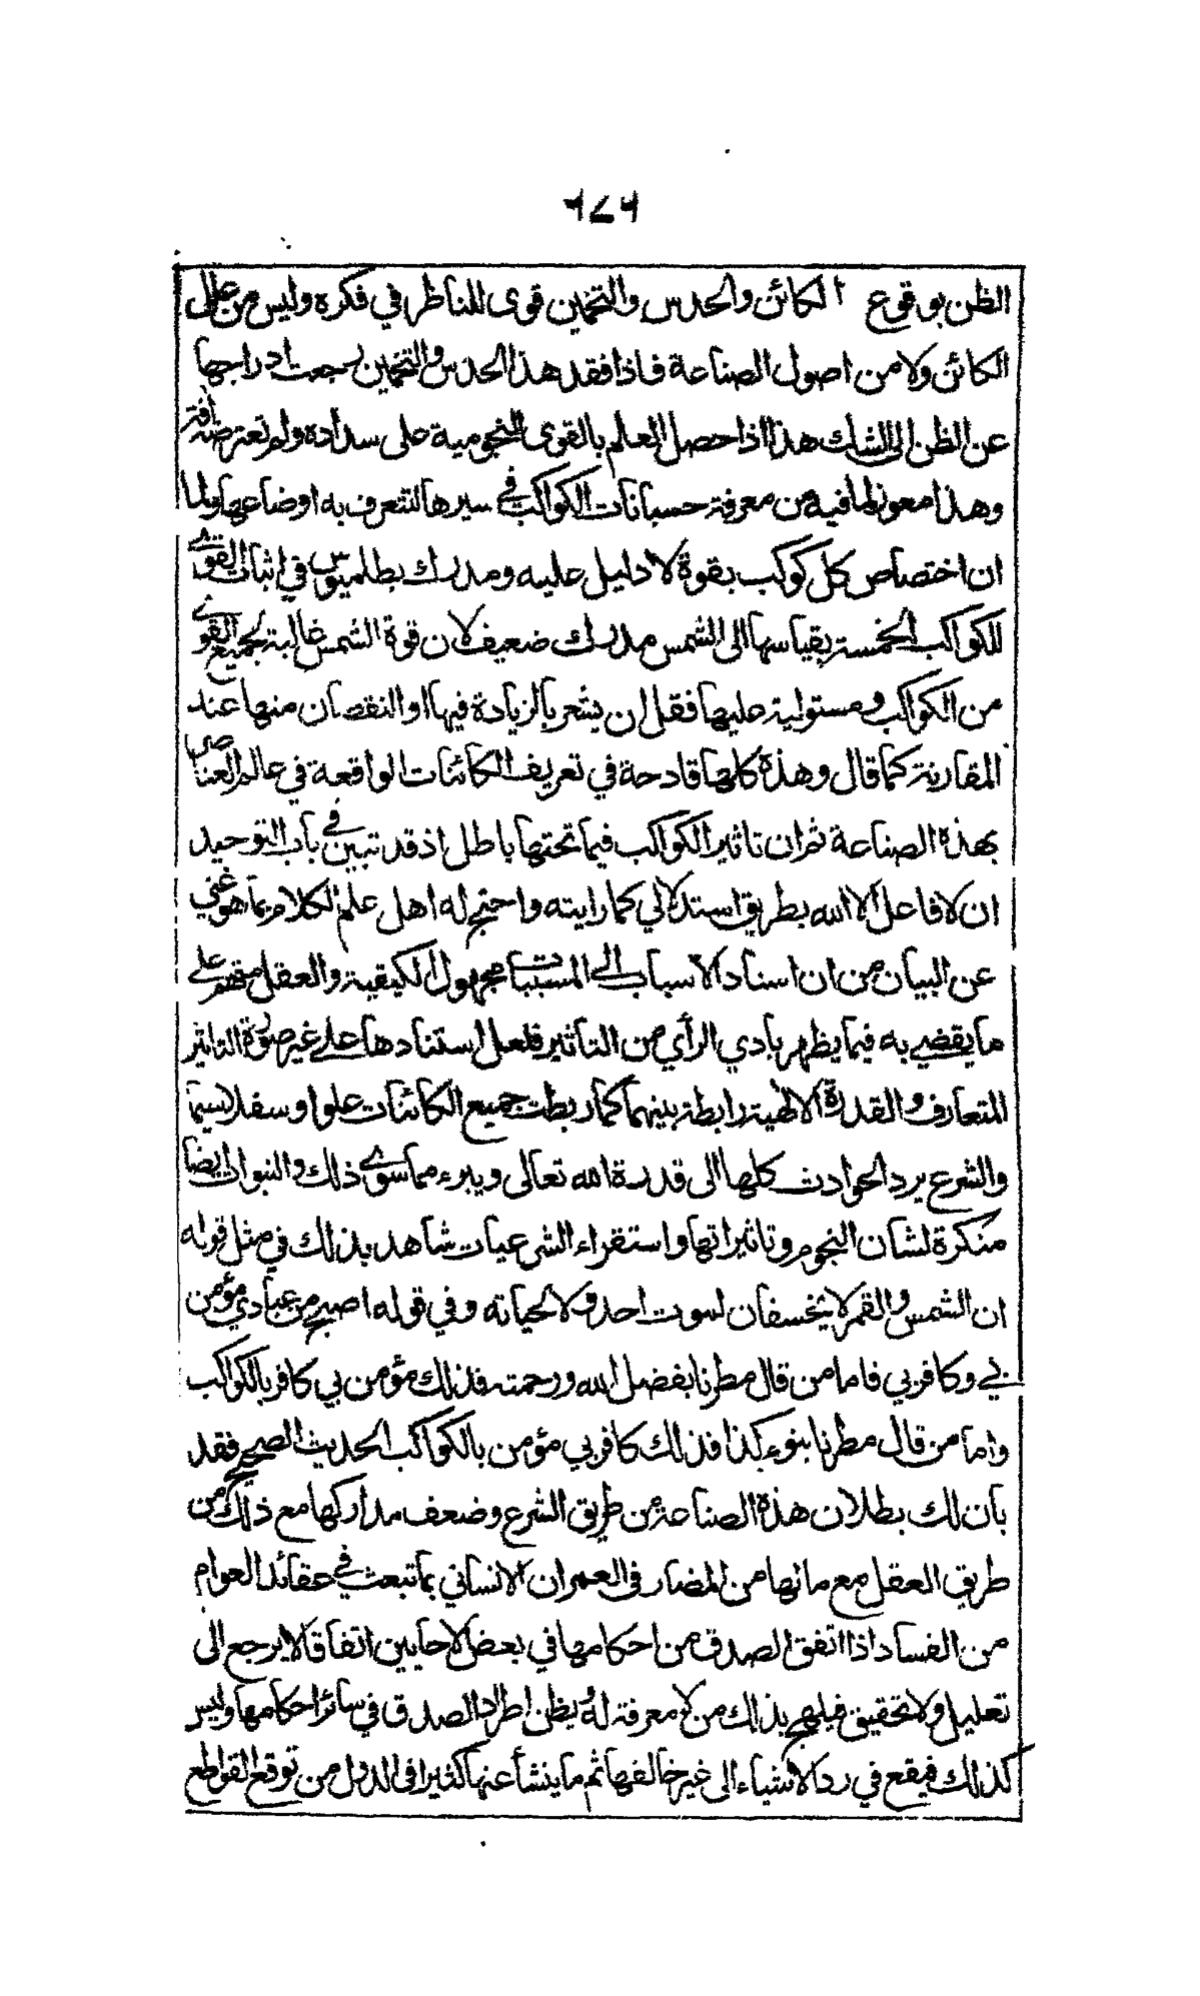 ٦٧٦
الظن بوقوع الكائن والحدس والتخمين قوى للناظر في فكره وليس من علل
الكائن ولا من اصول الصناعة فاذا فقد هذا الحدس والتخمين رجعت ادراجها
عن الظن الى الشك هذا اذا حصل العلم بالقوى النجومية على سداده ولم تعترضه آفة
وهذا معوز لما فيه من معرفة حسبانات الكواكب في سيرها لتتعرف به اوضاعها ولما
ان اختصاص كل كوكب بقوة لا دليل عليه ومدرك بطلميوس في اثبات القوى
للكواكب الخمسة بقياسها الى الشمس مدرك ضعيف لان قوة الشمس غالبة لجميع القوى
من الكواكب ومستولية عليها فقل ان يشعر بالزيادة فيها او النقصان منها عند
المقارنة كما قال وهذه كلها قادحة في تعريف الكائنات الواقعة في عالم العناصر
بهذه الصناعة ثم ان تاثير الكواكب فيما تحتها باطل اذ قد تبين في باب التوحيد
ان لا فاعل الا الله بطريق استدلالي كما رايته واحتج له اهل علم الكلام بما هو غني
عن البيان من ان اسناد الاسباب الى المسببات مجهول الكيفية والعقل متهم على
ما يقضي به فيما يظهر بادي الرأي من التاثير فلعل استنادها على غير صورة التاثير
المتعارف والقدرة الالهية رابطة بينهما كما ربطت جميع الكائنات علوا وسفلا سيما
والشرع يرد الحوادث كلها الى قدرة الله تعالى ويبرء مما سوى ذلك والنبوات ايضا
منكرة لشان النجوم وتاثيراتها واستقراء الشرعيات شاهد بذلك في مثل قوله
ان الشمس والقمر لا يخسفان لموت احد ولا لحياته وفي قوله اصبح من عبادي مؤمن
بي وكافر بي فاما من قال مطرنا بفضل الله ورحمته فذلك مؤمن بي كافر بالكواكب
واما من قال مطرنا بنوء كذا فذلك كافر بي مؤمن بالكواكب الحديث الصحيح فقد
بان لك بطلان هذه الصناعة من طريق الشرع وضعف مداركها مع ذلك من
طريق العقل مع ما لها من المضار في العمران الانساني بما تبعث في عقائد العوام
من الفساد اذا اتفق الصدق من احكامها في بعض الاحايين اتفاقا لا يرجع الى
تعليل ولا تحقيق فيلهج بذلك من لا معرفة له ويظن اطراد الصدق في سائر احكامها وليس
كذلك فيقع في رد الاشياء الى غير خالقها ثم ما ينشأ عنها كثيرا في الدول من توقع القواطع